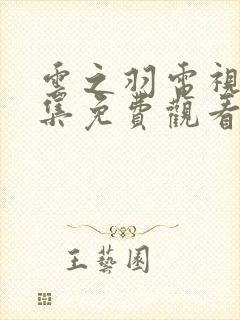 雲之羽電視
集免費觀看
王藝園